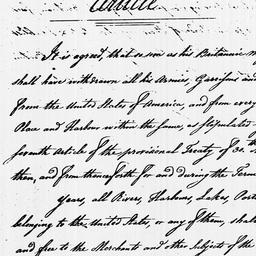 Article
It is agreed, that so soon as his Britannic M
shall have withdrawn all his Armies, Garrisons and
from the United States of America, and from every
Place and Harbour within the same, as stipulated
seventh Article of the provisional Treaty of 30.th
them, and from thenceforth for and during the Term
Years, all Rivers, Harbours, Lakes, Ports
belonging to the United States, or any of them, shall
and free to the Merchants and other Subjects of the